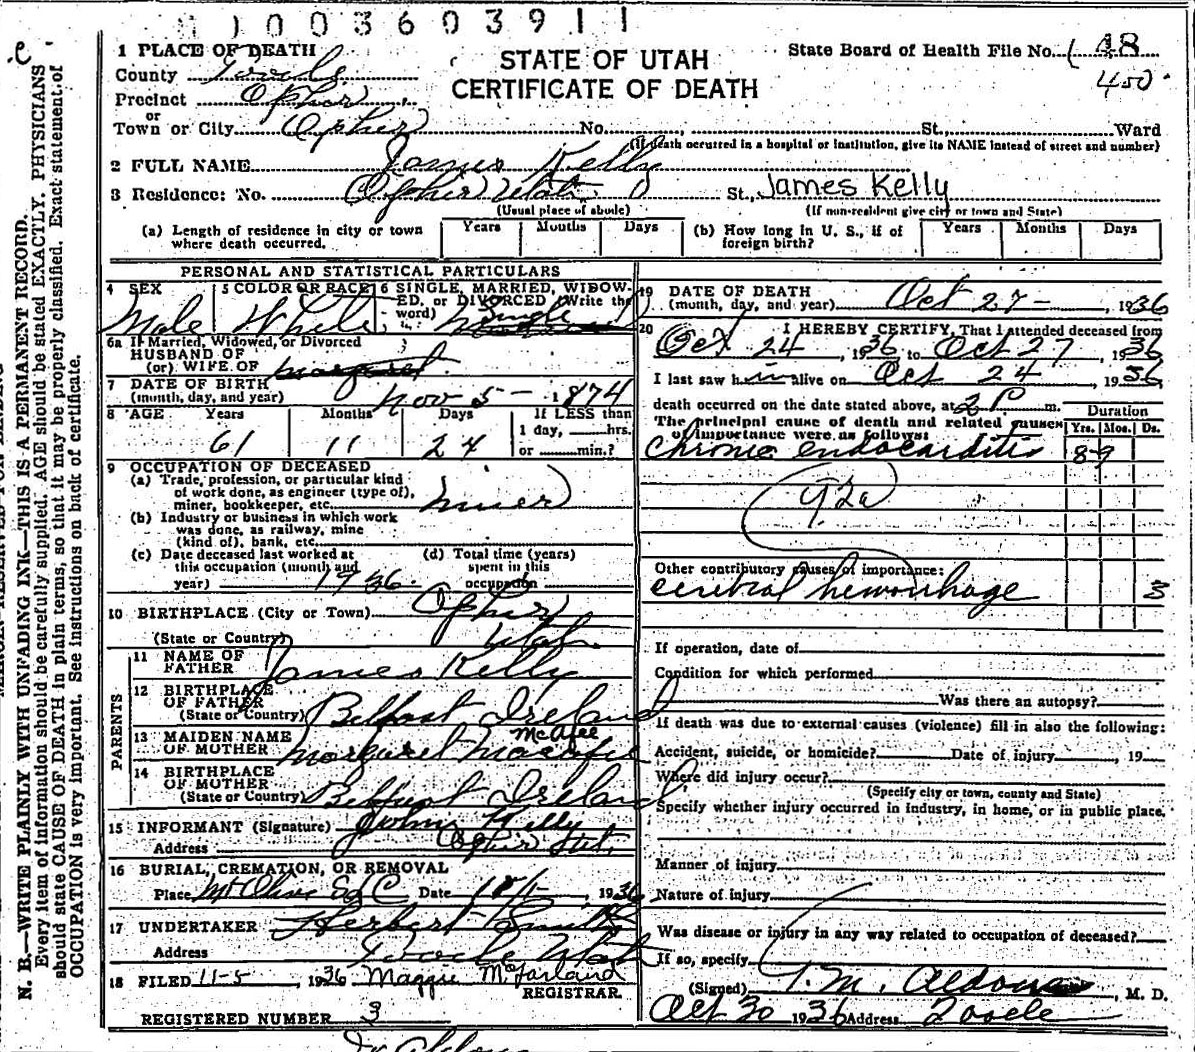 1003603911
1 PLACE OF DEATH
STATE OF UTAH
CERTIFICATE OF DEATH
State Board of Health File No. 48
450
County Tooele
Precinct Ophir
or
Town or City Ophir No. , St., Ward
(If death occurred in a hospital or institution, give its NAME instead of street and number)
2 FULL NAME James Kelly
3 Residence: No. Ophir Utah St., James Kelly
(Usual place of abode) (If non-resident give city or town and State)
(a) Length of residence in city or town where death occurred. Years Months Days (b) How long in U. S., if of foreign birth? Years Months Days
PERSONAL AND STATISTICAL PARTICULARS
4 SEX Male
5 COLOR OR RACE White
6 SINGLE, MARRIED, WIDOWED, or DIVORCED (Write the word) Single
6a If Married, Widowed, or Divorced
HUSBAND OF
(or) WIFE OF Margaret
7 DATE OF BIRTH
(month, day, and year) Nov 5 - 1874
8 AGE Years Months Days If LESS than
61 11 24 1 day, hrs.
or min.?
9 OCCUPATION OF DECEASED
(a) Trade, profession, or particular kind
of work done, as engineer (type of),
miner, bookkeeper, etc. Miner
(b) Industry or business in which work
was done, as railway, mine
(kind of), bank, etc.
(c) Date deceased last worked at
this occupation (month and
year) 1936
(d) Total time (years)
spent in this
occupation
10 BIRTHPLACE (City or Town) Ophir
(State or Country) Utah
PARENTS
11 NAME OF
FATHER James Kelly
12 BIRTHPLACE
OF FATHER
(State or Country) Belfast Ireland
13 MAIDEN NAME McAfee
OF MOTHER Margaret
14 BIRTHPLACE
OF MOTHER
(State or Country) Belfast Ireland
15 INFORMANT (Signature) John Kelly
Address Ophir
16 BURIAL, CREMATION, OR REMOVAL
Place Mt Olivet Date , 1936
17 UNDERTAKER Herbert
Address Tooele Utah
18 FILED 11-5 , 1936 Maggie McFarland
REGISTRAR.
REGISTERED NUMBER 3
19 DATE OF DEATH
(month, day, and year) Oct 27- , 1936
20 I HEREBY CERTIFY, That I attended deceased from
Oct 24 , 1936 to Oct 27 , 1936
I last saw him alive on Oct 24 , 1936
death occurred on the date stated above, at 2 P m.
The principal cause of death and related causes
of importance were as follows:
Duration
Yrs. Mos. Ds.
Chronic endocarditis 8-9
92a
Other contributory causes of importance:
cerebral hemorrhage 3
If operation, date of
Condition for which performed
Was there an autopsy?
If death was due to external causes (violence) fill in also the following:
Accident, suicide, or homicide? Date of injury , 19
Where did injury occur?
(Specify city or town, county and State)
Specify whether injury occurred in industry, in home, or in public place.
Manner of injury
Nature of injury
Was disease or injury in any way related to occupation of deceased?
If so, specify
(Signed) , M. D.
Oct 30 1936 Address Tooele
N. B.—WRITE PLAINLY WITH UNFADING INK—THIS IS A PERMANENT RECORD.
Every item of information should be carefully supplied. AGE should be stated EXACTLY. PHYSICIANS
should state CAUSE OF DEATH in plain terms, so that it may be properly classified. Exact statement of
OCCUPATION is very important. See instructions on back of certificate.